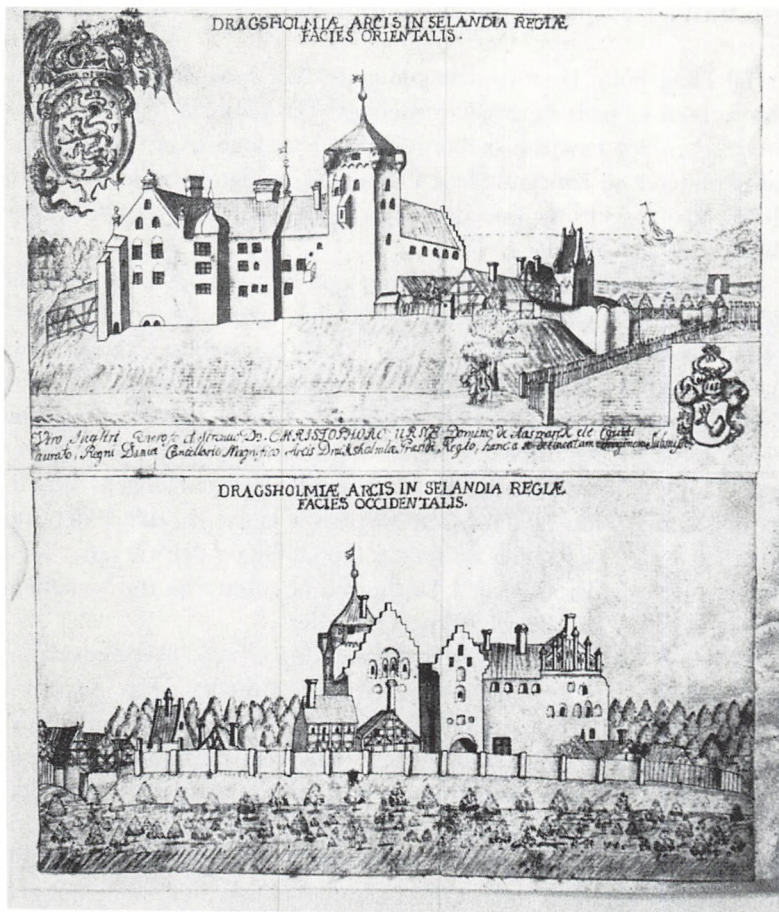 DRAGSHOLMIÆ ARCIS IN SELANDIA REGIÆ
FACIES ORIENTALIS.
Viro Generoso Dn. CHRISTOPHORO URNE Domino de Aasmarck Equiti
aurato, Regni Daniæ Cancellario Magnifico Arcis Præsidi Regio, hanc a se delineatam
DRAGSHOLMIÆ ARCIS IN SELANDIA REGIÆ
FACIES OCCIDENTALIS.